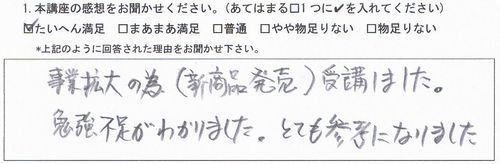 1. 本講座の感想をお聞かせください。(あてはまる□1つに✔を入れてください)
☑たいへん満足 □まあまあ満足 □普通 □やや物足りない □物足りない
*上記のように回答された理由をお聞かせ下さい。
事業拡大の為(新商品発売)受講しました。
勉強不足がわかりました。とても参考になりました